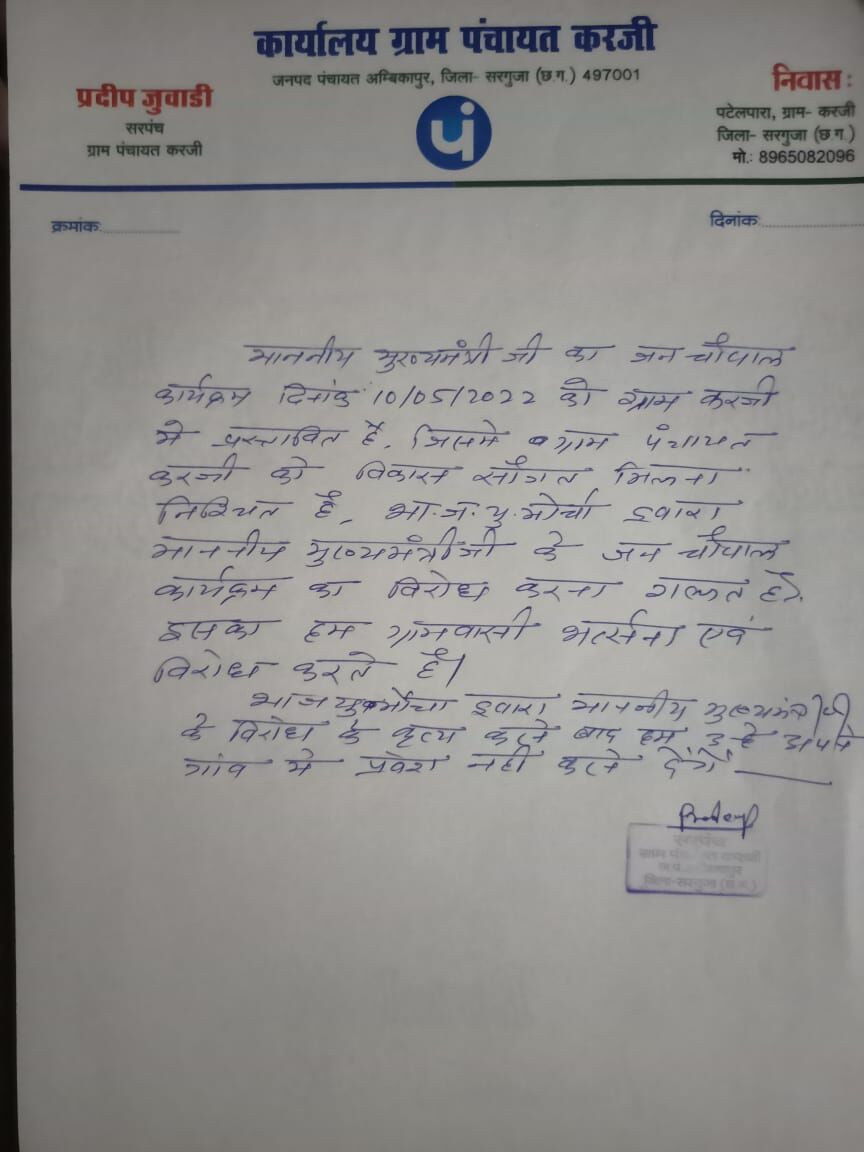 कार्यालय ग्राम पंचायत करजी
जनपद पंचायत अम्बिकापुर, जिला- सरगुजा (छ.ग.) 497001
प्रदीप जुवाडी
सरपंच
ग्राम पंचायत करजी
पं
निवास :
पटेलपारा, ग्राम- करजी
जिला- सरगुजा (छ.ग.)
मो.: 8965082096
क्रमांक:
दिनांक:
माननीय मुख्यमंत्री जी का जन चौपाल
कार्यक्रम दिनांक 10/05/2022 को ग्राम करजी
मे प्रस्तावित है, जिसमे ग्राम पंचायत
करजी को विकास सौगत मिलना
निश्चित है, भा.ज.यु.मोर्चा द्वारा
माननीय मुख्यमंत्रीजी के जन चौपाल
कार्यक्रम का विरोध करना गलत है।
इसका हम ग्रामवासी भर्त्सना एवं
विरोध करते है।
भाजयुमोर्चा द्वारा माननीय मुख्यमंत्री जी
के विरोध के कृत्य करने बाद हम उन्हे अपने
गांव मे प्रवेश नही करने देंगे
सरपंच
ग्राम पंचायत करजी
ज.प. अम्बिकापुर
जिला-सरगुजा (छ.ग.)